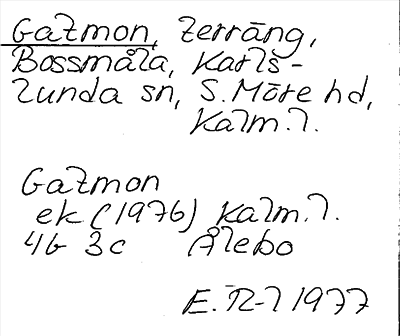 Gatmon, terräng,
Bossmåla, Karls-
lunda sn, S. Möre hd,
Kalm. l.
Gatmon
ek (1976) Kalm. l.
4G 3c Ålebo
E. R-l 1977